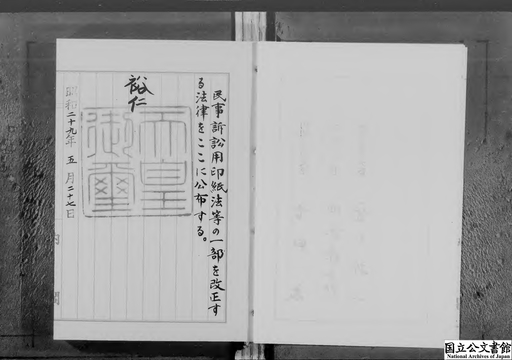 民事訴訟用印紙法等の一部を改正す
る法律をここに公布する。
裕仁
天皇
御璽
昭和二十九年五月二十七日
内閣
国立公文書館
National Archives of Japan